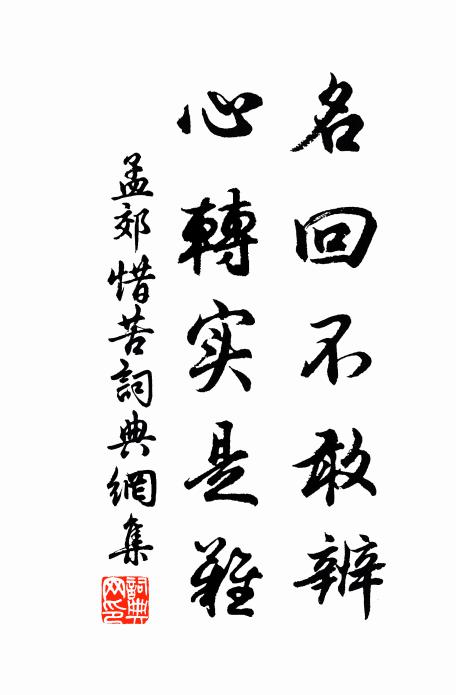 名回不敢辨
心轉实是難
孟郊惜苦詞典網集
詞典
网印